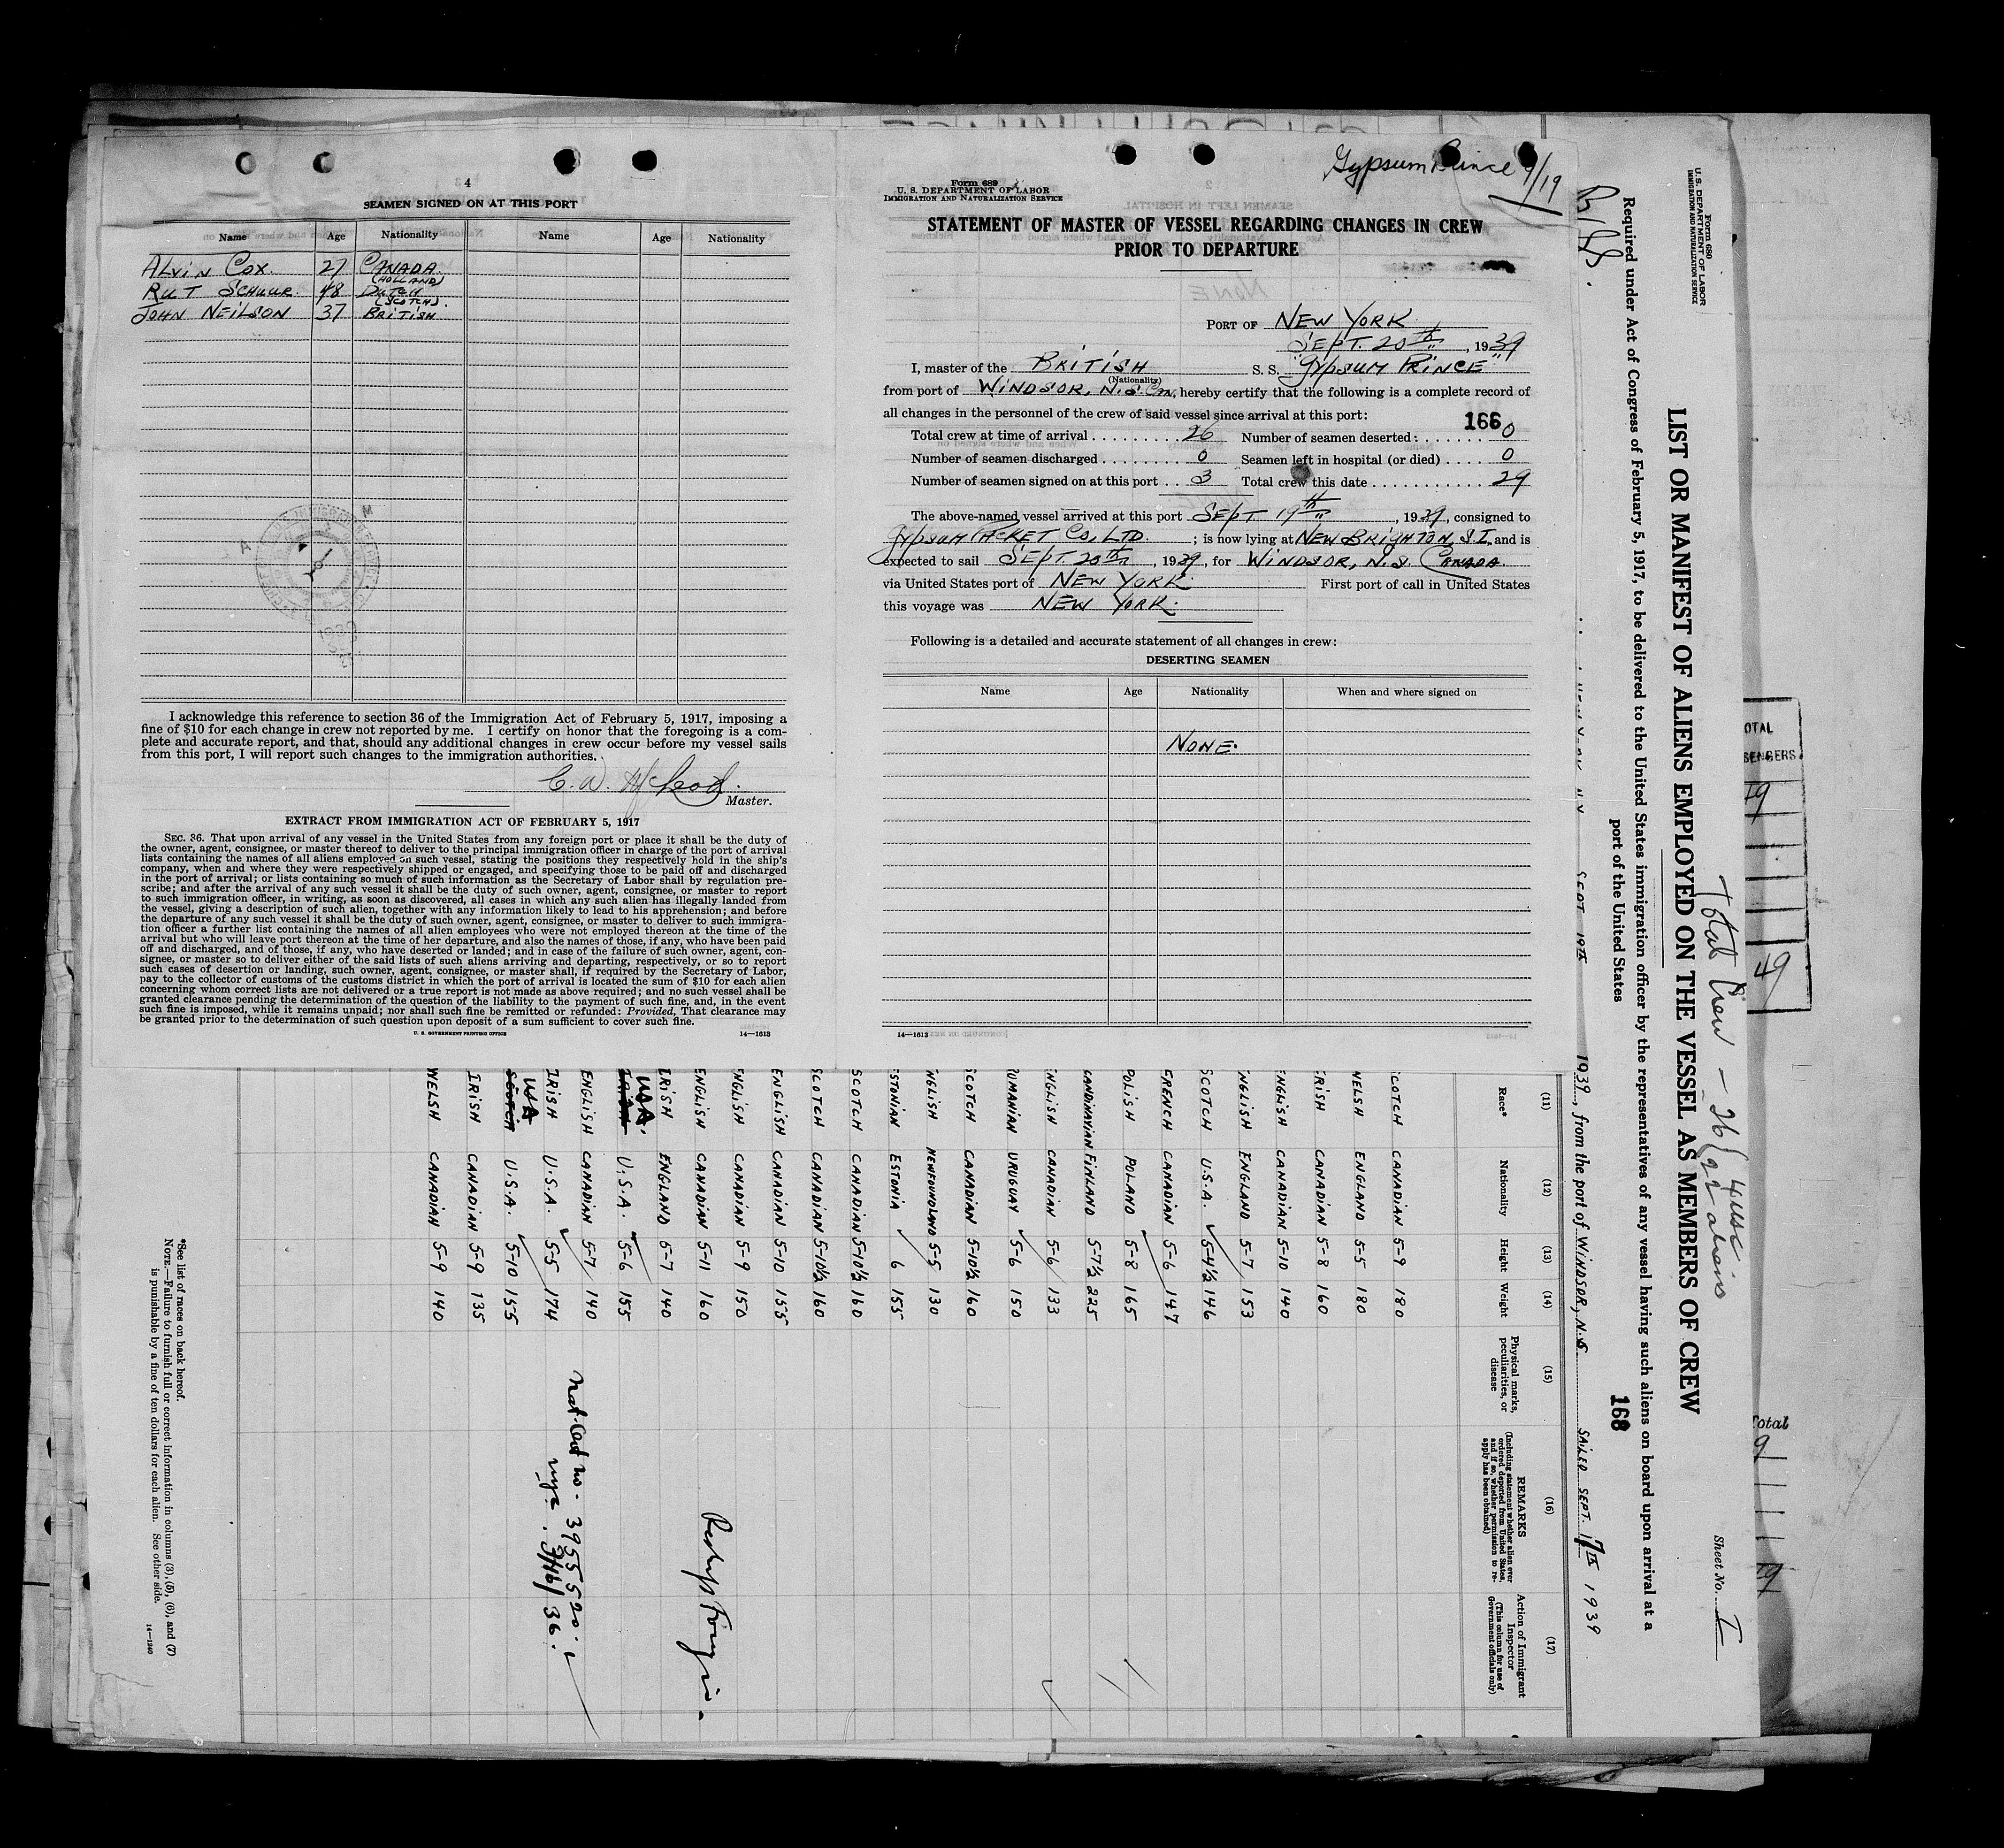 4
SEAMEN SIGNED ON AT THIS PORT
Name Age Nationality Name Age Nationality
ALVIN COX. 27 CANADA.
(HOLLAND)
RUT SCHUUR. 48 DUTCH
(SCOTCH).
JOHN NEILSON 37 BRITISH
I acknowledge this reference to section 36 of the Immigration Act of February 5, 1917, imposing a
fine of $10 for each change in crew not reported by me. I certify on honor that the foregoing is a com-
plete and accurate report, and that, should any additional changes in crew occur before my vessel sails
from this port, I will report such changes to the immigration authorities.
C. W. McLeod.
Master.
EXTRACT FROM IMMIGRATION ACT OF FEBRUARY 5, 1917
SEC. 36. That upon arrival of any vessel in the United States from any foreign port or place it shall be the duty of
the owner, agent, consignee, or master thereof to deliver to the principal immigration officer in charge of the port of arrival
lists containing the names of all aliens employed on such vessel, stating the positions they respectively hold in the ship's
company, when and where they were respectively shipped or engaged, and specifying those to be paid off and discharged
in the port of arrival; or lists containing so much of such information as the Secretary of Labor shall by regulation pre-
scribe; and after the arrival of any such vessel it shall be the duty of such owner, agent, consignee, or master to report
to such immigration officer, in writing, as soon as discovered, all cases in which any such alien has illegally landed from
the vessel, giving a description of such alien, together with any information likely to lead to his apprehension; and before
the departure of any such vessel it shall be the duty of such owner, agent, consignee, or master to deliver to such immigra-
tion officer a further list containing the names of all alien employees who were not employed thereon at the time of the
arrival but who will leave port thereon at the time of her departure, and also the names of those, if any, who have been paid
off and discharged, and of those, if any, who have deserted or landed; and in case of the failure of such owner, agent, con-
signee, or master so to deliver either of the said lists of such aliens arriving and departing, respectively, or so to report
such cases of desertion or landing, such owner, agent, consignee, or master shall, if required by the Secretary of Labor,
pay to the collector of customs of the customs district in which the port of arrival is located the sum of $10 for each alien
concerning whom correct lists are not delivered or a true report is not made as above required; and no such vessel shall be
granted clearance pending the determination of the question of the liability to the payment of such fine, and, in the event
such fine is imposed, while it remains unpaid; nor shall such fine be remitted or refunded: Provided, That clearance may
be granted prior to the determination of such question upon deposit of a sum sufficient to cover such fine.
U. S. GOVERNMENT PRINTING OFFICE 14—1613
Gypsum Prince 9/19
Form 689
U. S. DEPARTMENT OF LABOR
IMMIGRATION AND NATURALIZATION SERVICE
STATEMENT OF MASTER OF VESSEL REGARDING CHANGES IN CREW
PRIOR TO DEPARTURE
PORT OF NEW YORK.
SEPT. 20th, 1939
I, master of the BRITISH S. S. "GYPSUM PRINCE"
(Nationality)
from port of WINDSOR, N.S. CAN, hereby certify that the following is a complete record of
all changes in the personnel of the crew of said vessel since arrival at this port:
166
Total crew at time of arrival 26 Number of seamen deserted: 0
Number of seamen discharged 0 Seamen left in hospital (or died) 0
Number of seamen signed on at this port 3 Total crew this date 29
The above-named vessel arrived at this port SEPT. 19th, 1939, consigned to
GYPSUM PACKET CO, LTD. ; is now lying at NEW BRIGHTON, S.I. and is
expected to sail SEPT. 20th, 1939, for WINDSOR, N.S. CANADA.
via United States port of NEW YORK. First port of call in United States
this voyage was NEW YORK.
Following is a detailed and accurate statement of all changes in crew:
DESERTING SEAMEN
Name Age Nationality When and where signed on
NONE.
14—1613
Form 680
U. S. DEPARTMENT OF LABOR
IMMIGRATION AND NATURALIZATION SERVICE
Sheet No. I
Total Crew - 26 { 4 usc.
22 aliens
LIST OR MANIFEST OF ALIENS EMPLOYED ON THE VESSEL AS MEMBERS OF CREW
Required under Act of Congress of February 5, 1917, to be delivered to the United States immigration officer by the representatives of any vessel having such aliens on board upon arrival at a
port of the United States
168
SEPT 19th 1939, from the port of WINDSOR, N.S. SAILED SEPT. 17th 1939
(11) (12) (13) (14) (15) (16) (17)
Race* Nationality Height Weight Physical marks, peculiarities, or disease REMARKS (Including statement whether alien ever ordered deported from United States, and if so, whether permission to re-apply has been obtained) Action of Immigrant Inspector (This column for use of Government officials only)
SCOTCH CANADIAN 5-9 180
WELSH ENGLAND 5-5 180
IRISH CANADIAN 5-8 160
ENGLISH CANADIAN 5-10 140
ENGLISH ENGLAND 5-7 153
SCOTCH U.S.A. 5-4½ 146
FRENCH CANADIAN 5-6 147
POLISH POLAND 5-8 165
SCANDINAVIAN FINLAND 5-7½ 225
ENGLISH CANADIAN 5-6 133
RUMANIAN URUGUAY 5-6 150
SCOTCH CANADIAN 5-10½ 160
ENGLISH NEWFOUNDLAND 5-5 130
ESTONIAN ESTONIA 6 155
SCOTCH CANADIAN 5-10½ 160
SCOTCH CANADIAN 5-10½ 160
ENGLISH CANADIAN 5-10 155
ENGLISH CANADIAN 5-9 150
ENGLISH CANADIAN 5-11 160
IRISH ENGLAND 5-7 140
USA. U.S.A. 5-6 155
ENGLISH CANADIAN 5-7 140
IRISH U.S.A. 5-5 174
nat. Cert no. 3955520.
USA
SCOTCH U.S.A. 5-10 155
IRISH CANADIAN 5-9 135
WELSH CANADIAN 5-9 140
*See list of races on back hereof.
NOTE.—Failure to furnish full or correct information in columns (3), (5), (6), and (7)
is punishable by a fine of ten dollars for each alien. See other side.
14—1240
49
Total